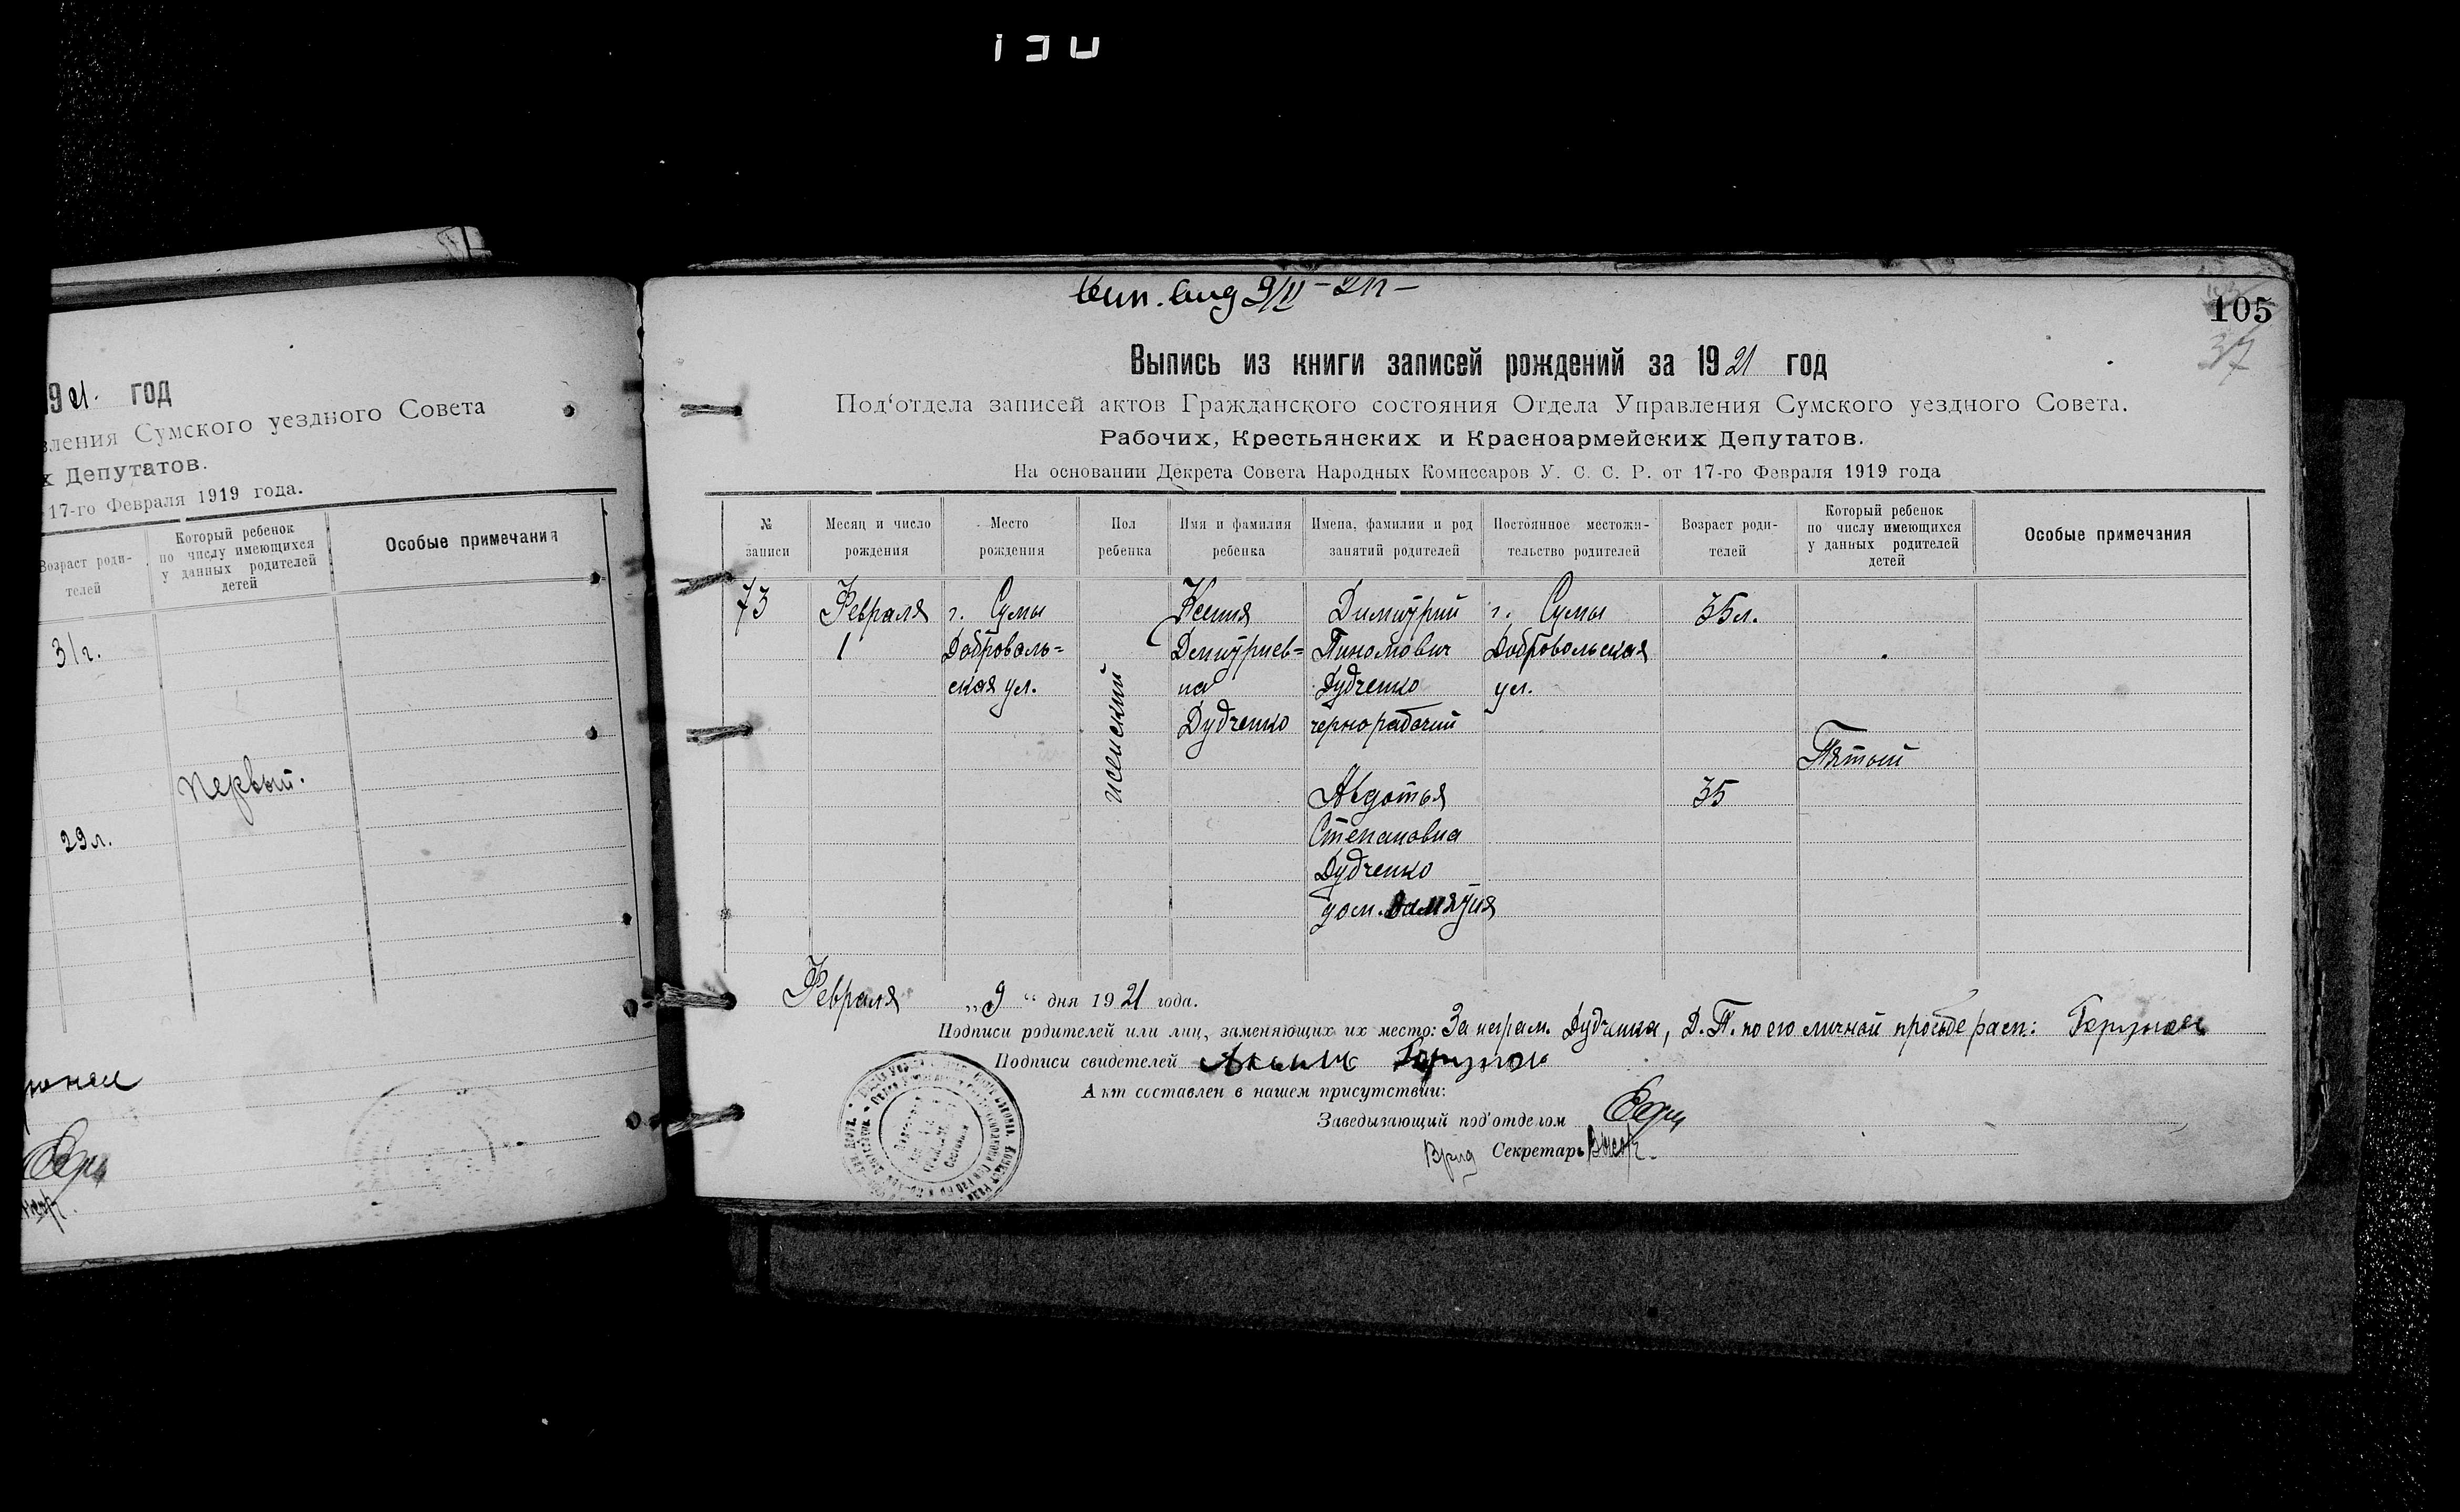 9 21. год
вления Сумского уездного Совета
х Депутатов.
17-го Февраля 1919 года.
Возраст роди-
телей
Который ребенок
по числу имеющихся
у данных родителей
детей
Особые примечания
31 г.
Первый.
29 л.
105
37
Выпись из книги записей рождений за 1921 год
Под‘отдела записей актов Гражданского состояния Отдела Управления Сумского уездного Совета.
Рабочих, Крестьянских и Красноармейских Депутатов.
На основании Декрета Совета Народных Комиссаров У. С. С. Р. от 17-го Февраля 1919 года
№
записи
Месяц и число
рождения
Место
рождения
Пол
ребенка
Имя и фамилия
ребенка
Имена, фамилии и род
занятий родителей
Постоянное местожи-
тельство родителей
Возраст роди-
телей
Который ребенок
по числу имеющихся
у данных родителей
детей
Особые примечания
73
Февраля
1
г. Сумы
Доброволь=
ская ул.
женский
Ксения
Димитриев=
на
Дудченко
Димитрий
Пиномович
Дудченко
чернорабочий
Авдотья
Степановна
Дудченко
дом.
г. Сумы
Добровольская
ул.
35 л.
35
Пятый
Февраля „9“ дня 1921 года.
Подписи родителей или лиц, заменяющих их место: За неграм. Дудченка, Д. Т. по его личной просьбе расп:
Подписи свидетелей
Акт составлен в нашем присутствии:
Заведывающий под‘отделом
Врид Секретарь